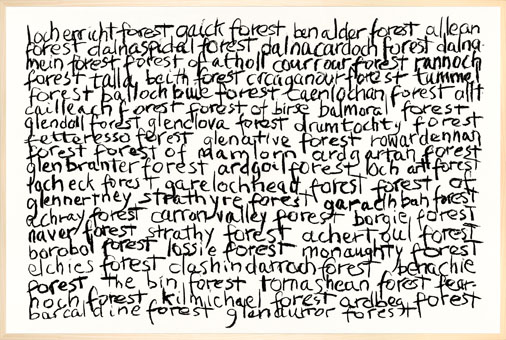 locherricht forest gaick forest benalder forest allean
forest dalnaspidal forest dalnacardoch forest dalna-
mein forest forest of atholl courrour forest rannoch
forest talla beith forest craiganour forest tummel
forest balloch buie forest caenlochan forest allt
cailleach forest forest of birse balmoral forest
glendoll forest glenclova forest drumtochty forest
fetteresso forest glenative forest rowardennan
forest forest of mamlorn ardgartan forest
glenbranter forest ardgoil forest loch ard forest
locheck forest garelochhead forest forest of
glennertney strathyre forest garadhban forest
achray forest carron valley forest borgie forest
naver forest strathy forest achertoul forest
borobol forest lossie forest monaughty forest
elchies forest clashindarroch forest benachie
forest the bin forest tornashean forest fear-
noch forest kilmichael forest ardbeg forest
barcaldine forest glenduror forest